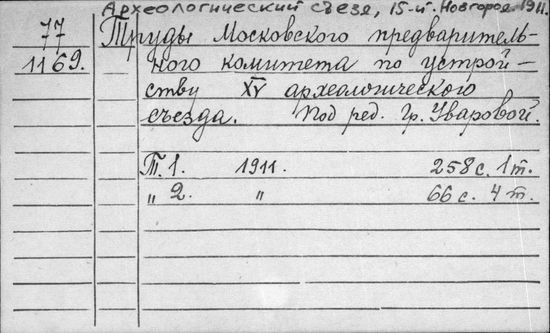 Археологический съезд, 15-й. Новгород. 1911.
77
1169.
Труды Московского предваритель-
ного комитета по устрой-
ству XV археологического
съезда. Под ред. Гр. Уваровой.
Т. 1. 1911. 258 с. 1 т.
" 2. " 66 с. 4 т.